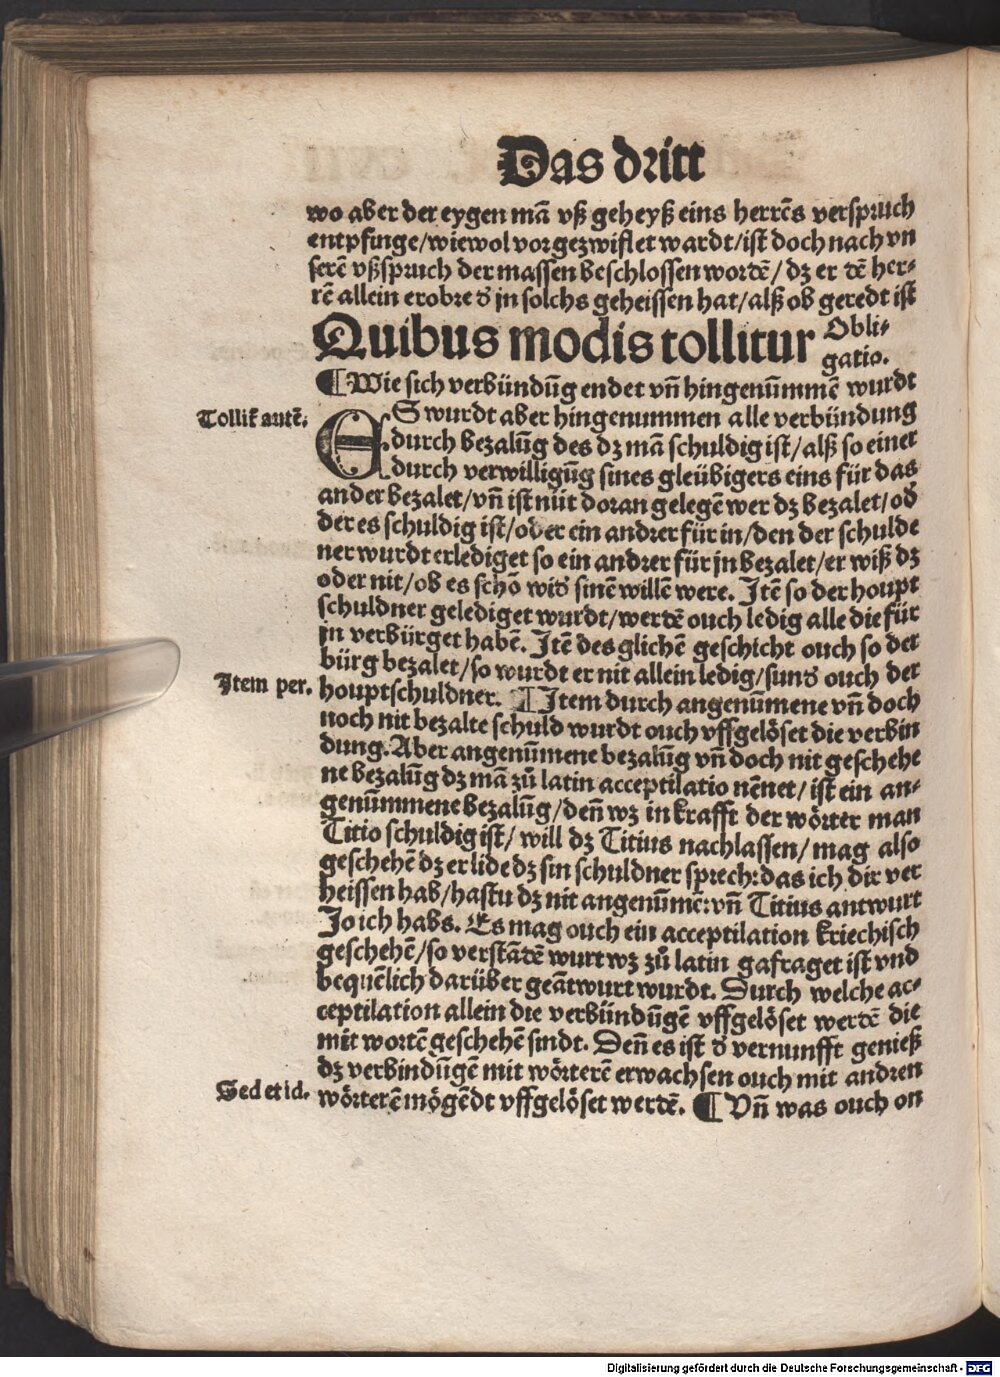 Das dritt
wo aber der eygen mā vß geheyß eins herrēs verspruch
entpfinge/wiewol vor gezwiflet wardt/ist doch nach vn
serē vßspruch der massen beschlossen wordē/ dz er dē her⸗
rē allein erobre d̕ jn solchs geheissen hat/alß ob geredt ist
Quibus modis tollitur Obli⸗
gatio.
¶Wie sich verbündūg endet vn̄ hingenūmmē wurdt
Tollit̃ autē.
ES wurdt aber hingenummen alle verbündung
durch bezalūg des dz mā schuldig ist/alß so einer
durch verwilligūg sines gleübigers eins für das
ander bezalet/vn̄ ist nüt doran gelegē wer dz bezalet/ob
der es schuldig ist/oder ein andrer für in/den der schulde
ner wurdt erlediget so ein andrer für jn bezalet/er wiß dz
oder nit/ob es schō wid̕ sinē willē were. Itē so der houpt
schuldner gelediget wurdt/werdē ouch ledig alle die für
jn verbürget habē. Itē des glichē geschicht ouch so der
bürg bezalet/so wurdt er nit allein ledig/sund̕ ouch der
Item per.
houptschuldner. ¶Item durch angenūmene vn̄ doch
noch nit bezalte schuld wurdt ouch vffgelöset die verbin
dung. Aber angenūmene bezalūg vn̄ doch nit geschehe
ne bezalūg dz mā zů latin acceptilatio nēnet/ ist ein an⸗
genūmmene bezalūg/den̄ wz in krafft der wörter man
Titio schuldig ist/ will dz Titius nachlassen/ mag also
geschehē dz er lide dz sin schuldner sprech: das ich dir ver
heissen hab/hastu dz nit angenūmē: vn̄ Titius antwurt
Jo ich habs. Es mag ouch ein acceptilation kriechisch
geschehē/so verstādē wurt wz zů latin gafraget ist vnd
bequēlich darüber geātwurt wurdt. Durch welche ac⸗
ceptilation allein die verbündūgē vffgelöset werdē die
mit wortē geschehē sindt. Den̄ es ist d̕ vernunfft genieß
dz verbindūgē mit wörterē erwachsen ouch mit andren
Sed et id.
wörterē mögēdt vffgelöset werdē. ¶Vn̄ was ouch on
Digitalisierung gefördert durch die Deutsche Forschungsgemeinschaft - DFG